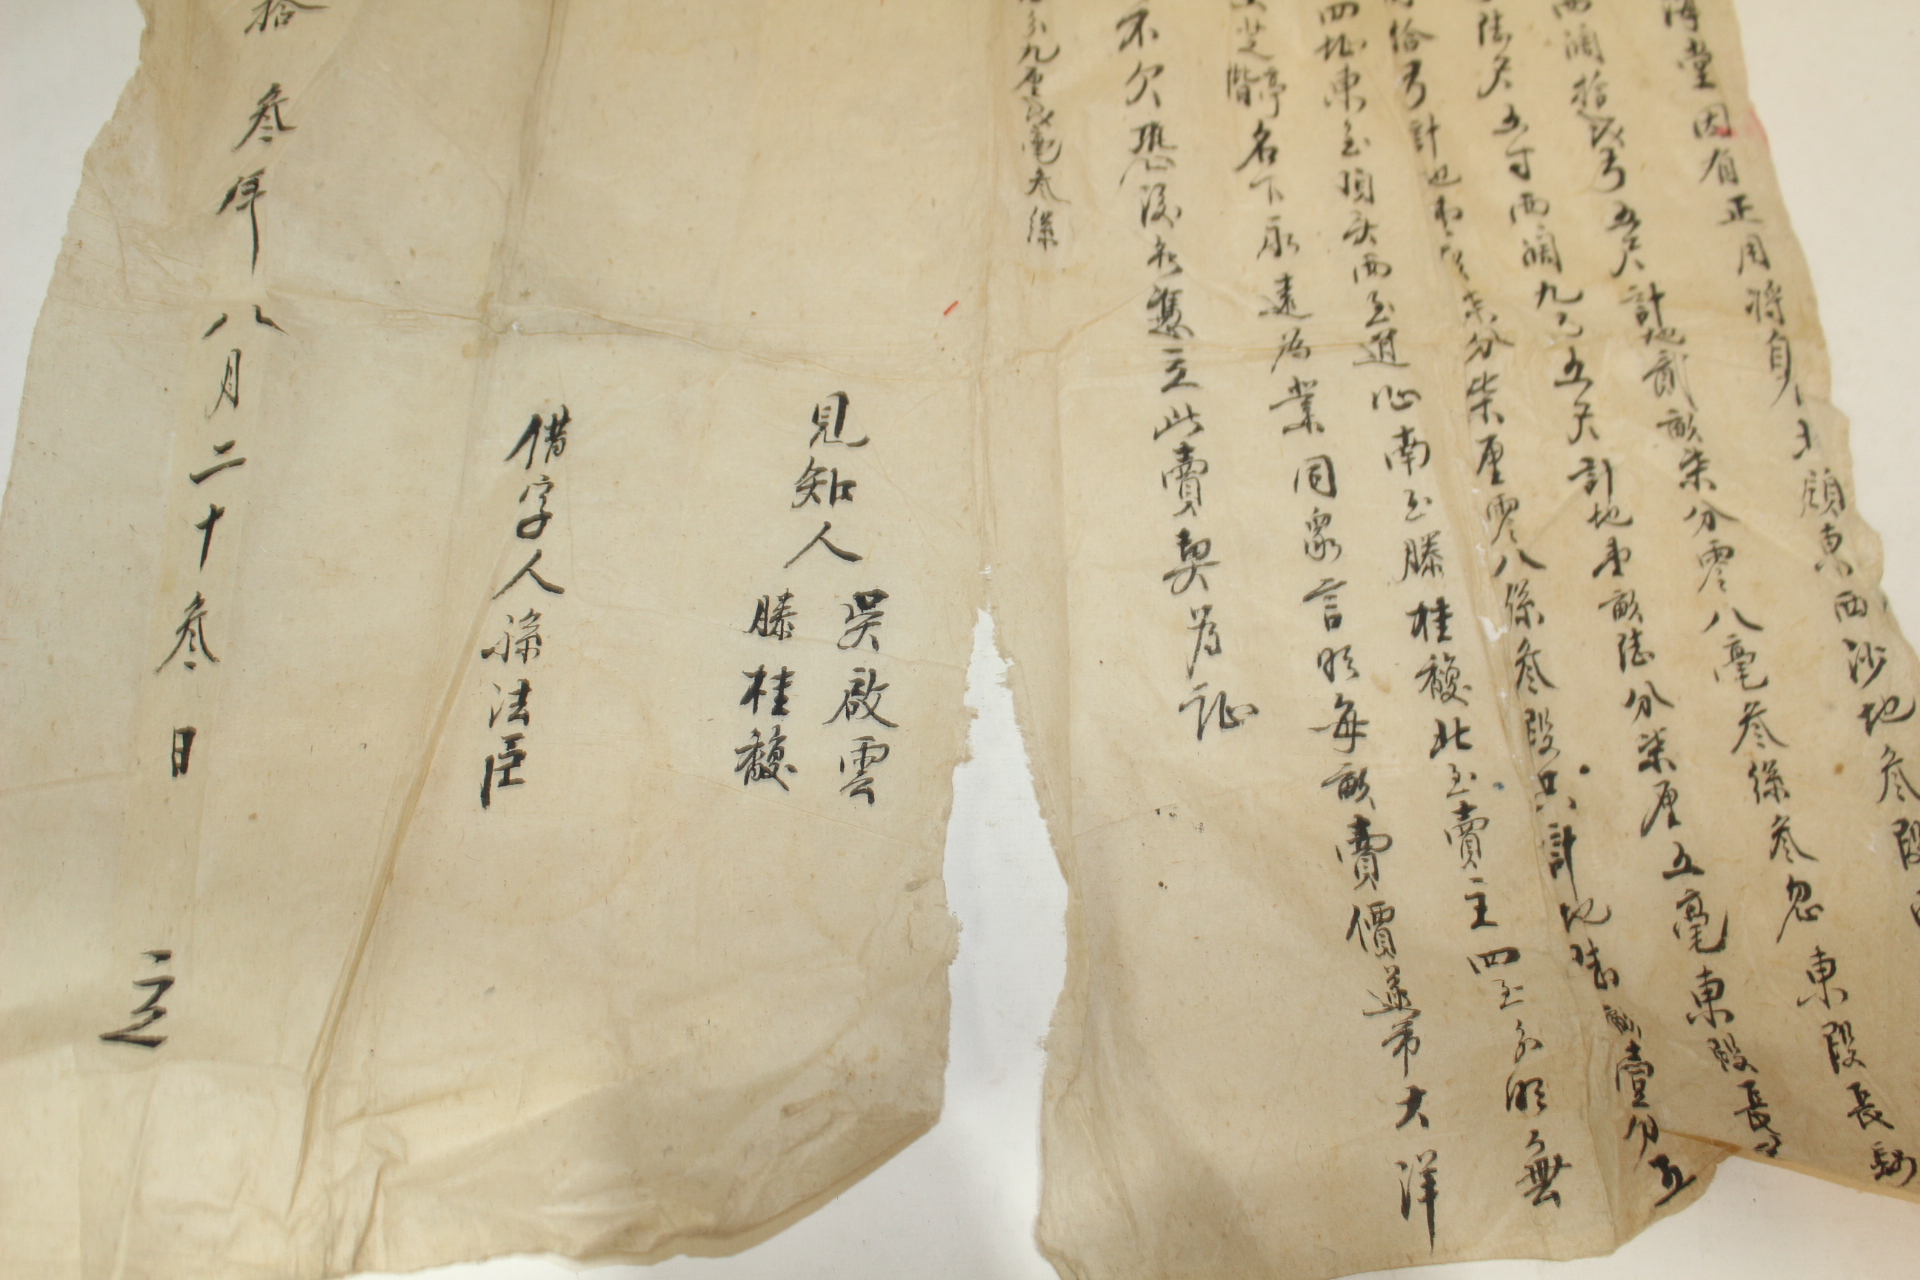 堂因有正用將自
頋東西沙地叁段
两濶拾弍弓五尺計地貳畝柒分零八毫叁絲叁忽東段長
陸尺五寸両濶九弓五尺計地壹畝陸分柒厘五毫東段長
拾弓計地
柒分柒厘零八絲叁段共計地陸畝壹分五
四址東至頂头西至道心南至滕桂馥北至賣主四至分明無
芝階亭名下永遠為業同衆言明每畝賣價遂市大洋
不欠恐後無憑立此賣契为证
分九厘弍毫叁絲
見知人 吴啟雲
滕桂馥
借字人孫法臣
拾叁年八月二十叁日 立